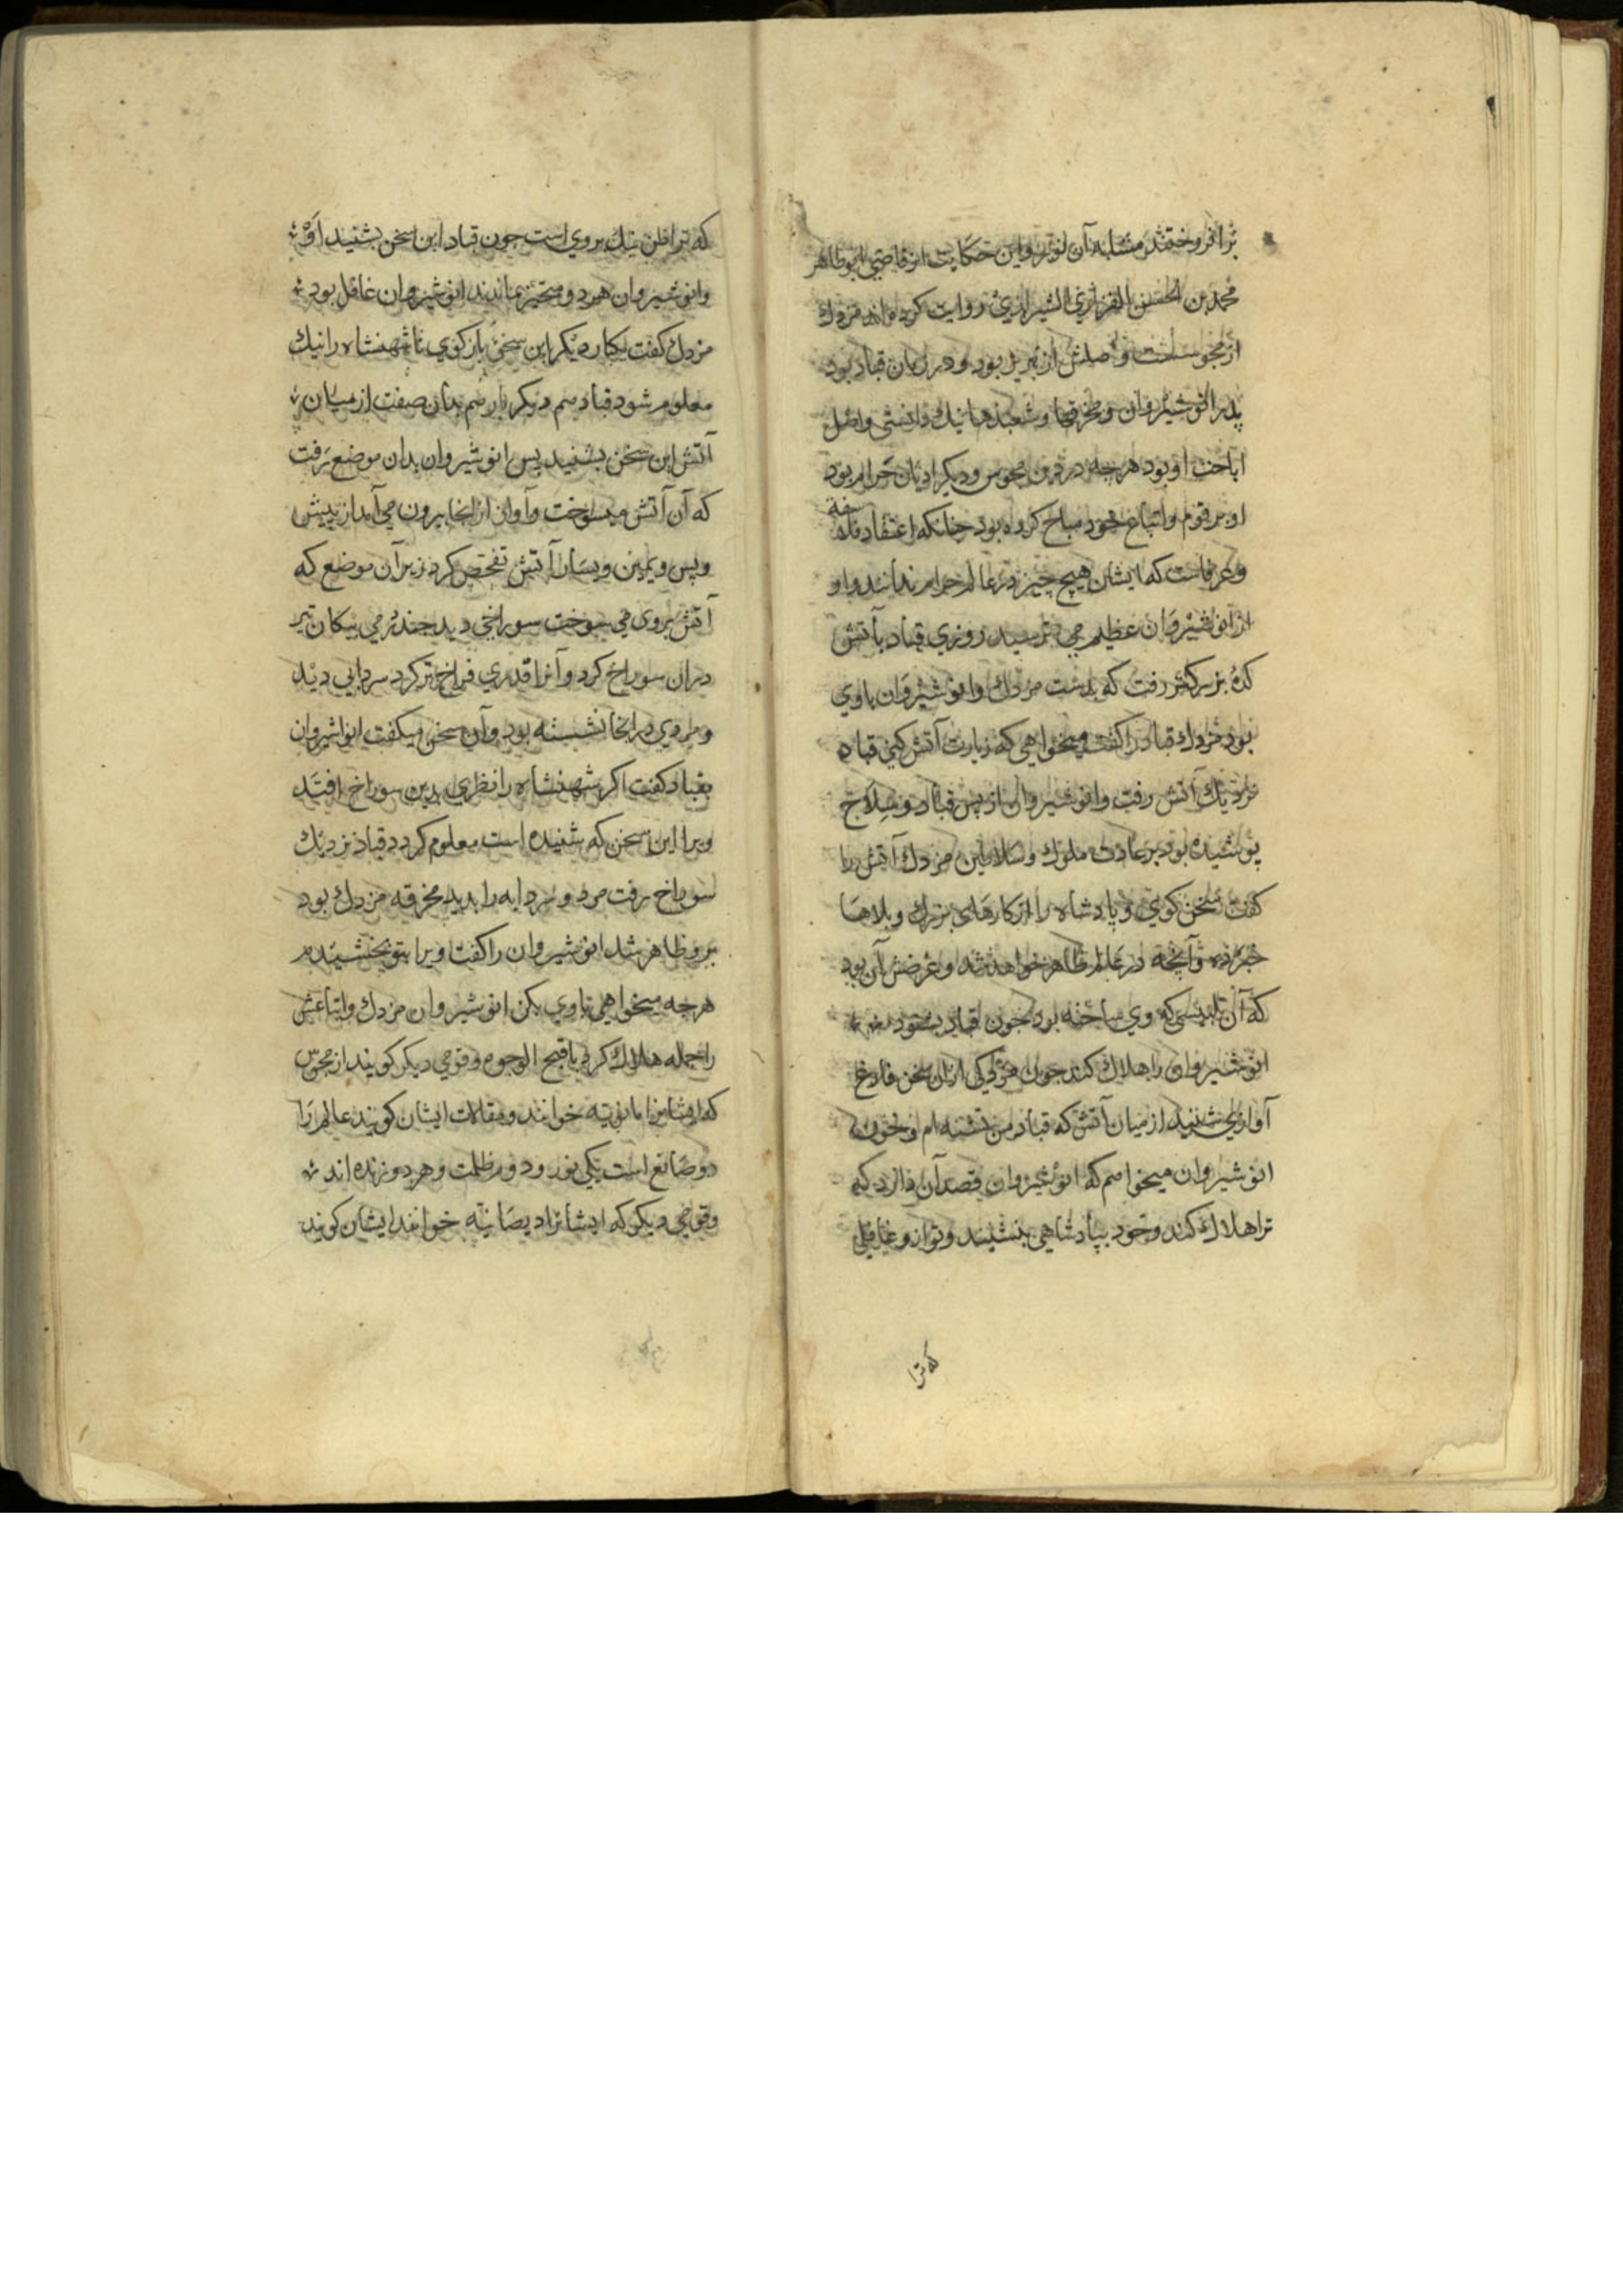 بر افروختند مشابه آن نور و این حکایت از قاضی ابو طاهر
محمد بن الحسن القزازی الشیرازی روایت کرده اند مزدك
از مجوس است و اصلش از تبریز بود و در زمان قباد بود
پدر انوشیروان و مخرقها و شعبذها نیك دانستی و اصل
اباحت او بود هرجه در دین مجوس و دیکر ادیان حرام بود
او بر قوم و اتباع خود مباح کرده بود جنانکه اعتقاد فلاسفه
و عرفاست که ایشان هیچ چیز در عالم حرام ندانند و او
از انوشیروان عظیم می ترسید روزی قباد بآتش
کده بزرکتر رفت که بدست مزدك و انوشیروان باوی
بود مزدك قباد را کفت میخواهی که زیارت آتش کنی قباد
نزدیك آتش رفت و انوشیروان از پس قباد و سلاح
پوشیده بود بر عادت ملوك و سلاطین مزدك آتش را
کفت سخن کوی و پادشاه را از کارهای بزرك و بلاها
خبر ده و آنجه در عالم ظاهر خواهد شد و غرضش آن بود
که آن تلبیسی که وی ساخته بود جون قباد بشنود
انوشیروان را هلاك کند جون مزدك از آن سخن فارغ
آوازی شنید از میان آتش که قباد من تشنه ام و بخون
انوشیروان میخواهم که انوشیروان قصد آن دارد که
ترا هلاك کند و خود بپادشاهی بنشیند و تو از و غافلی
که ترا
که ترا ظن نیك بروی است جون قباد این سخن بشنید او
و انوشیروان هردو متحیر بماندند انوشیروان غافل بود
مزدك کفت یکبار دیکر این سخن باز کوی تا شهنشاه را نیك
معلوم شود قباد هم دیکر بار هم بدان صفت از میان
آتش این سخن بشنید پس انوشیروان بدان موضع رفت
که آن آتش میسوخت و آواز از انجا بیرون می آمد از پیش
و پس و یمین و یسار آتش تفحص کرد زیر آن موضع که
آتش بروی می سوخت سوراخی دید جندرمی بیکان تیر
دران سوراخ کرد و آنرا قدری فراخ تر کرد سردابی دید
و مردی درانجا نشسته بود و آن سخن میکفت انوشیروان
بقباد کفت اکر شهنشاه را نظری بدین سوراخ افتد
ویرا این سخن که شنیده است معلوم کردد قباد نزدیك
سوراخ رفت مرد و سردابه را بدید مخرقه مزدك بود
برو ظاهر شد انوشیروان را کفت ویرا بتو بخشیدم
هرجه میخواهی باوی بکن انوشیروان مزدك و اتباعش
را جمله هلاك کرد باقبح الوجوه و قومی دیکر کویند از مجوس
که ایشانرا مانویه خوانند و مقالات ایشان کویند عالم را
دو صانع است یکی نور و دوم ظلمت و هر دو زنده اند
و قومی دیکر که ایشانرا دیصانیه خوانند ایشان کویند